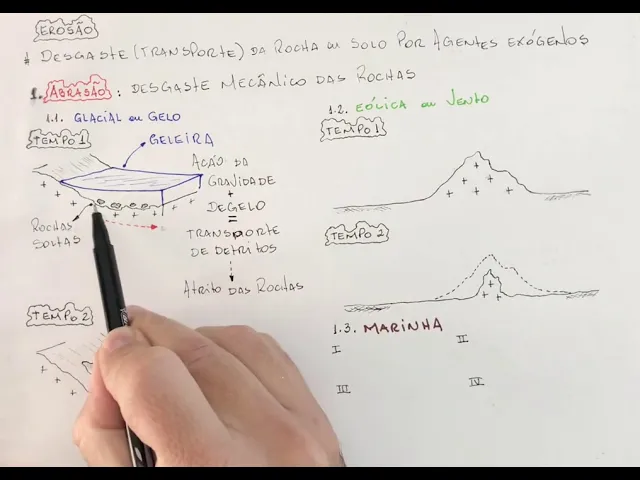 EROSÃO
# DESGASTE (TRANSPORTE) DA ROCHA OU SOLO POR AGENTES EXÓGENOS
1. ABRASÃO: DESGASTE MECÂNICO DAS ROCHAS
1.1. GLACIAL OU GELO
TEMPO 1
GELEIRA
AÇÃO DA
GRAVIDADE
+
DEGELO
=
TRANSPORTE
DE DETRITOS
ATRITO DAS ROCHAS
ROCHAS
SOLTAS
TEMPO 2
1.2. EÓLICA OU VENTO
TEMPO 1
TEMPO 2
1.3. MARINHA
I
II
III
IV